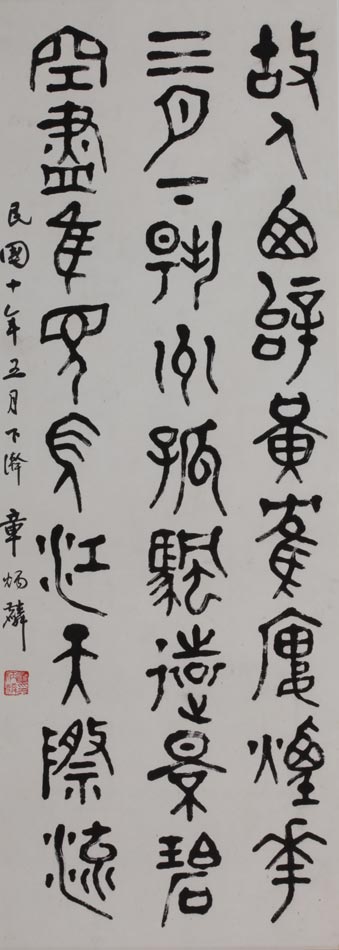 故人西辭黃隺廔煙華
三月下揚州孤颿遠景碧
空盡隹見長江天際流
民國十年五月下澣 章炳麟